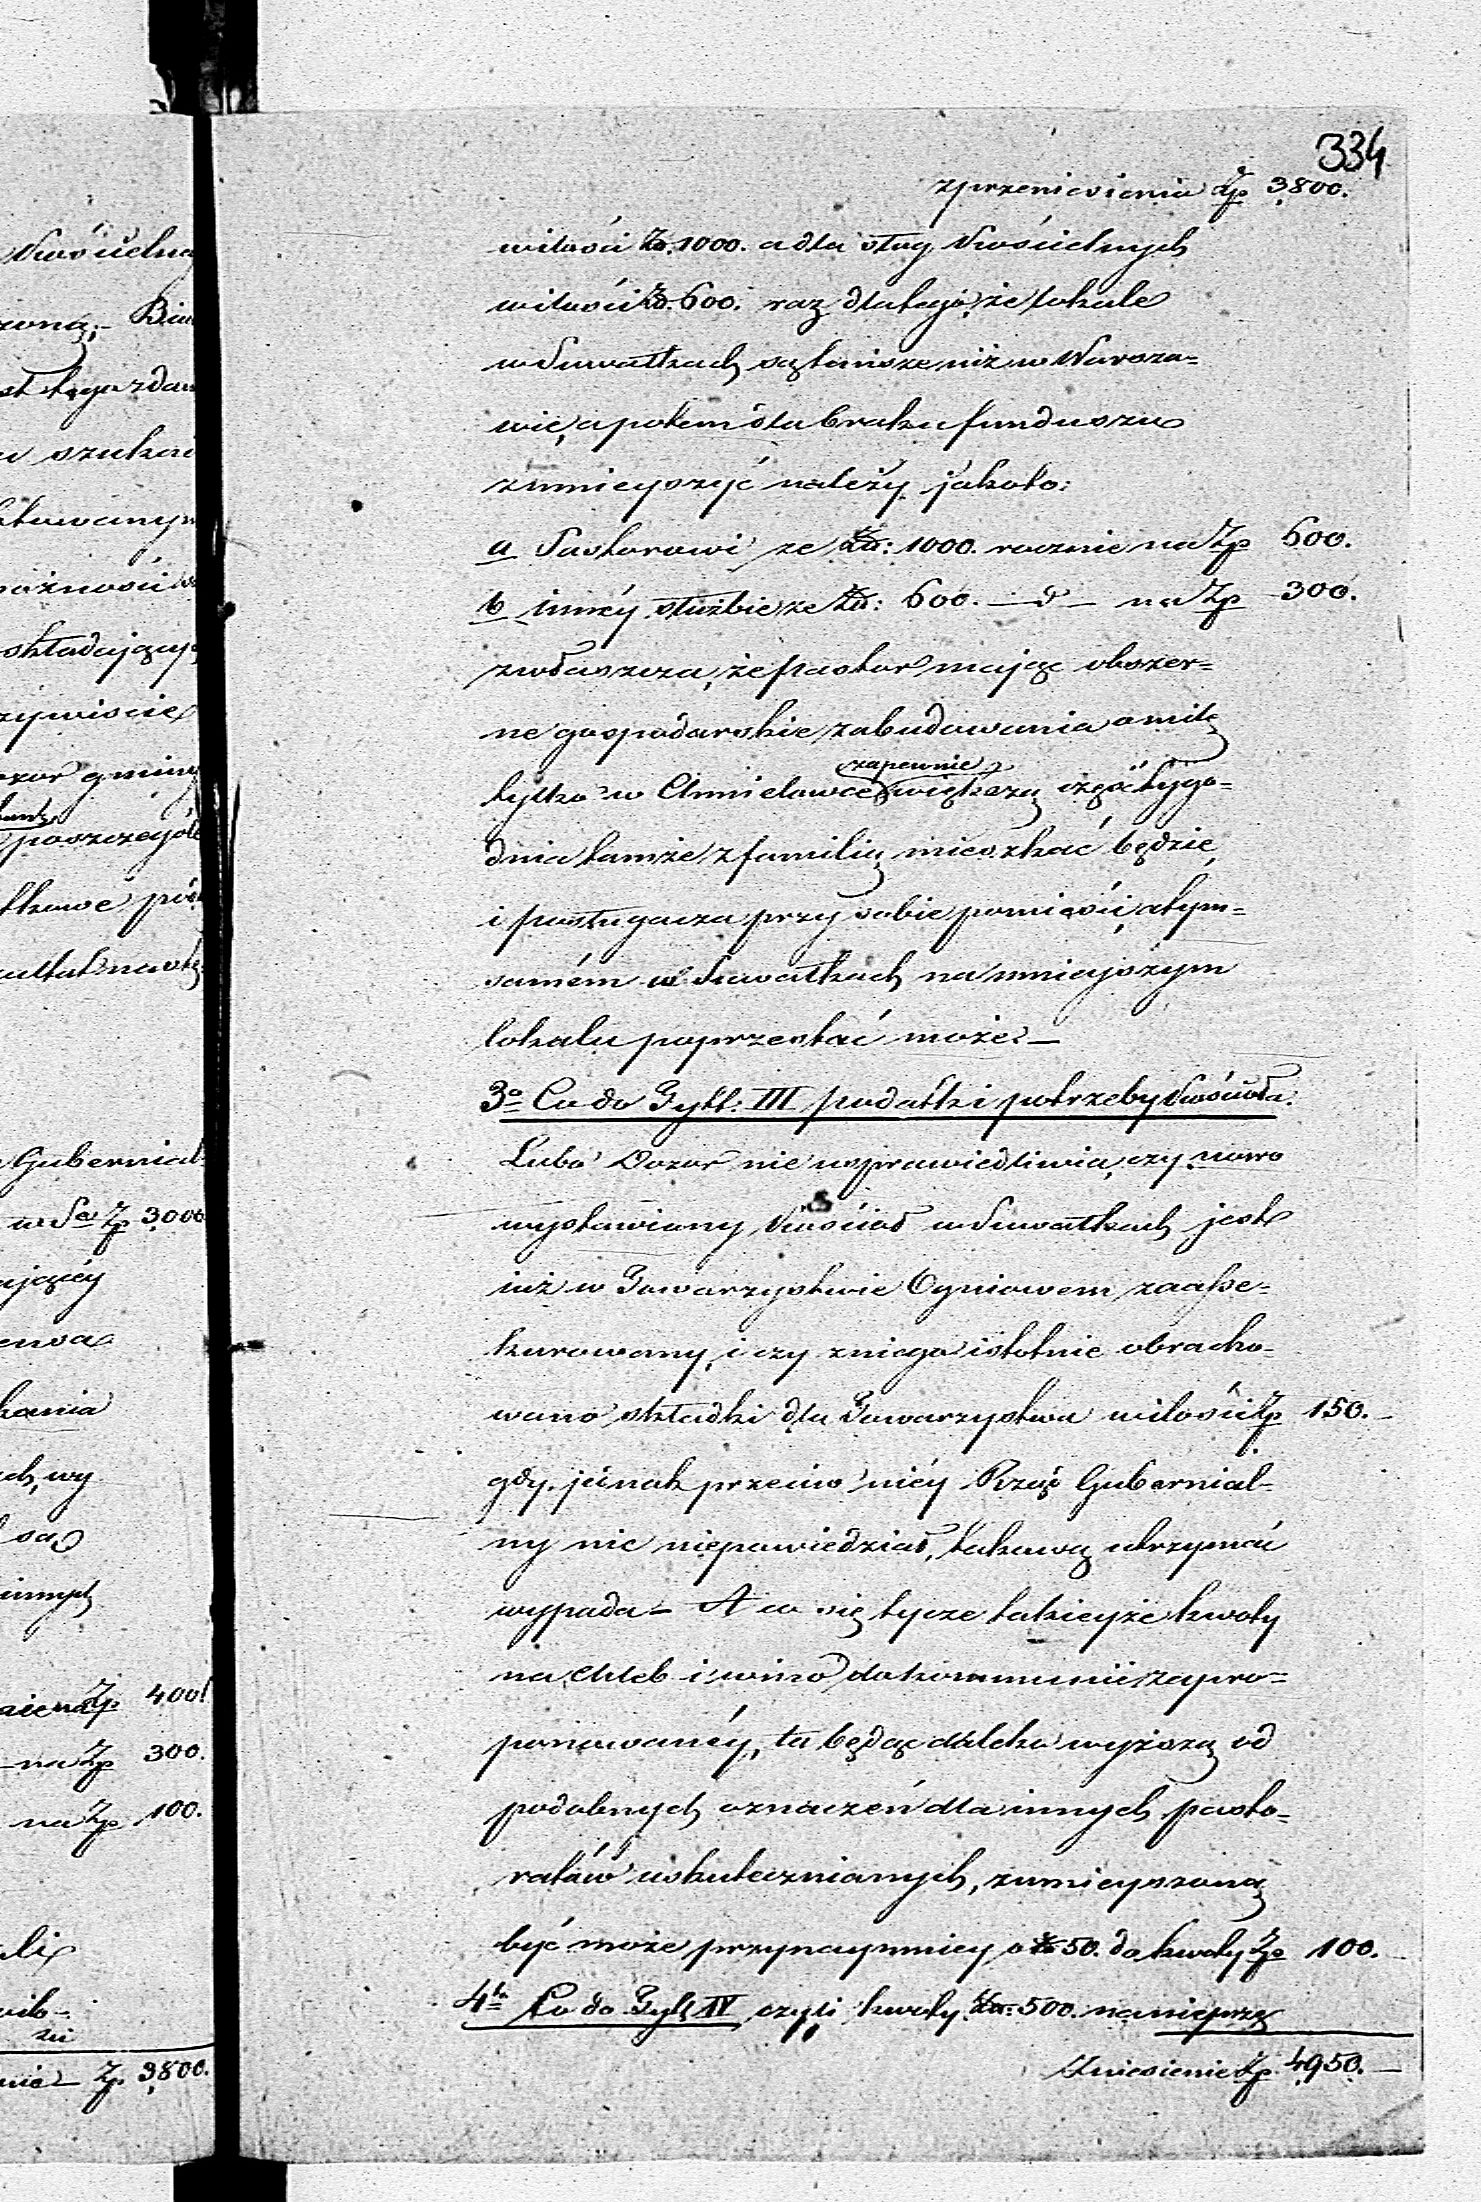 334
z przeniesienia Zp 3,800.
wilości Zł. 1000. a dla sług Kościelnych
wilości Zł. 600. raz dla tego, że lokale
w Suwałkach są tańsze niż w Warsza-
wie, a potem dla braku funduszu
zmnieyszyć należy jakoto:
a Pastorowi ze Zł: 1000. rocznie na Zp 600.
b innéy służbie ze Zł: 600. — d — na Zp 300.
zwłaszcza, że pastor mając obszer-
ne gospodarskie zabudowania o milę
zapewnie
tylko w Chmielowce większą część tygo-
dnia tamże z familią mieszkać będzie
i posługacza przy sobie pomieści, a tym-
samém w Suwałkach na mnieyszym
lokalu poprzestać może. —
3o Co do Tytł: III podatki i potrzeby Kościoła.
Lubo Dozór nie usprawiedliwia, czy nowo
wystawiony Kościół w Suwałkach jest
już w Towarzystwie Ogniowem zaasse-
kurowany, i czy z niego istotnie obracho-
wano składki dla Towarzystwa wilości Zp 150. —
gdy jednak przeciw niéy Rząd Gubernial-
ny nic niepowiedział, takową utrzymać
wypada — A co się tycze takieyże kwoty
na chleb i wino do kommunii zapro-
ponowanéy, ta będąc daleko wyższą od
podobnych oznaczeń dla innych pasto-
ratów uskutecznianych, zmnieyszoną
być może przynaymniey o Zł 50. do kwoty Zp 100. —
4to Co do Tytł IV czyli kwoty Zł: 500. na nieprze
Zniesienie Zp. 4,950. —
Kościelną
szukai
składający
Gubernial-
Zp 3,000
wy
innych
Zp 400
na Zp 300.
na Zp 100.
Zp. 3,800.